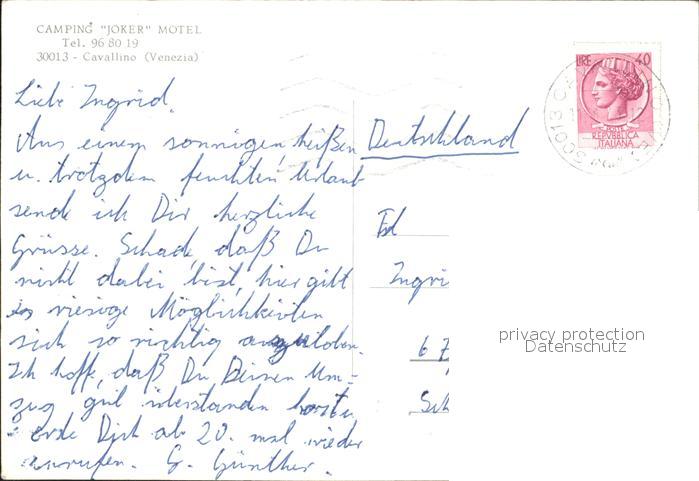 CAMPING "JOKER" MOTEL
Tel. 96 80 19
30013 - Cavallino (Venezia)
Liebe Ingrid,
Aus einem sonnigen, heißen
u. trotzdem feuchten Urlaub
sende ich Dir herzliche
Grüsse. Schade, daß Du
nicht dabei bist, hier gibt
es riesige Möglichkeiten
sich so richtig auszutoben.
Ich hoffe, daß Du Deinen Um=
zug gut überstanden hast u.
werde Dich ab 20. mal wieder
anrufen. G. Günther.
LIRE 40
POSTE
REPVBBLICA
ITALIANA
30013 CA
Deutschland
Frl
Ingri
67
Sch
privacy protection
Datenschutz